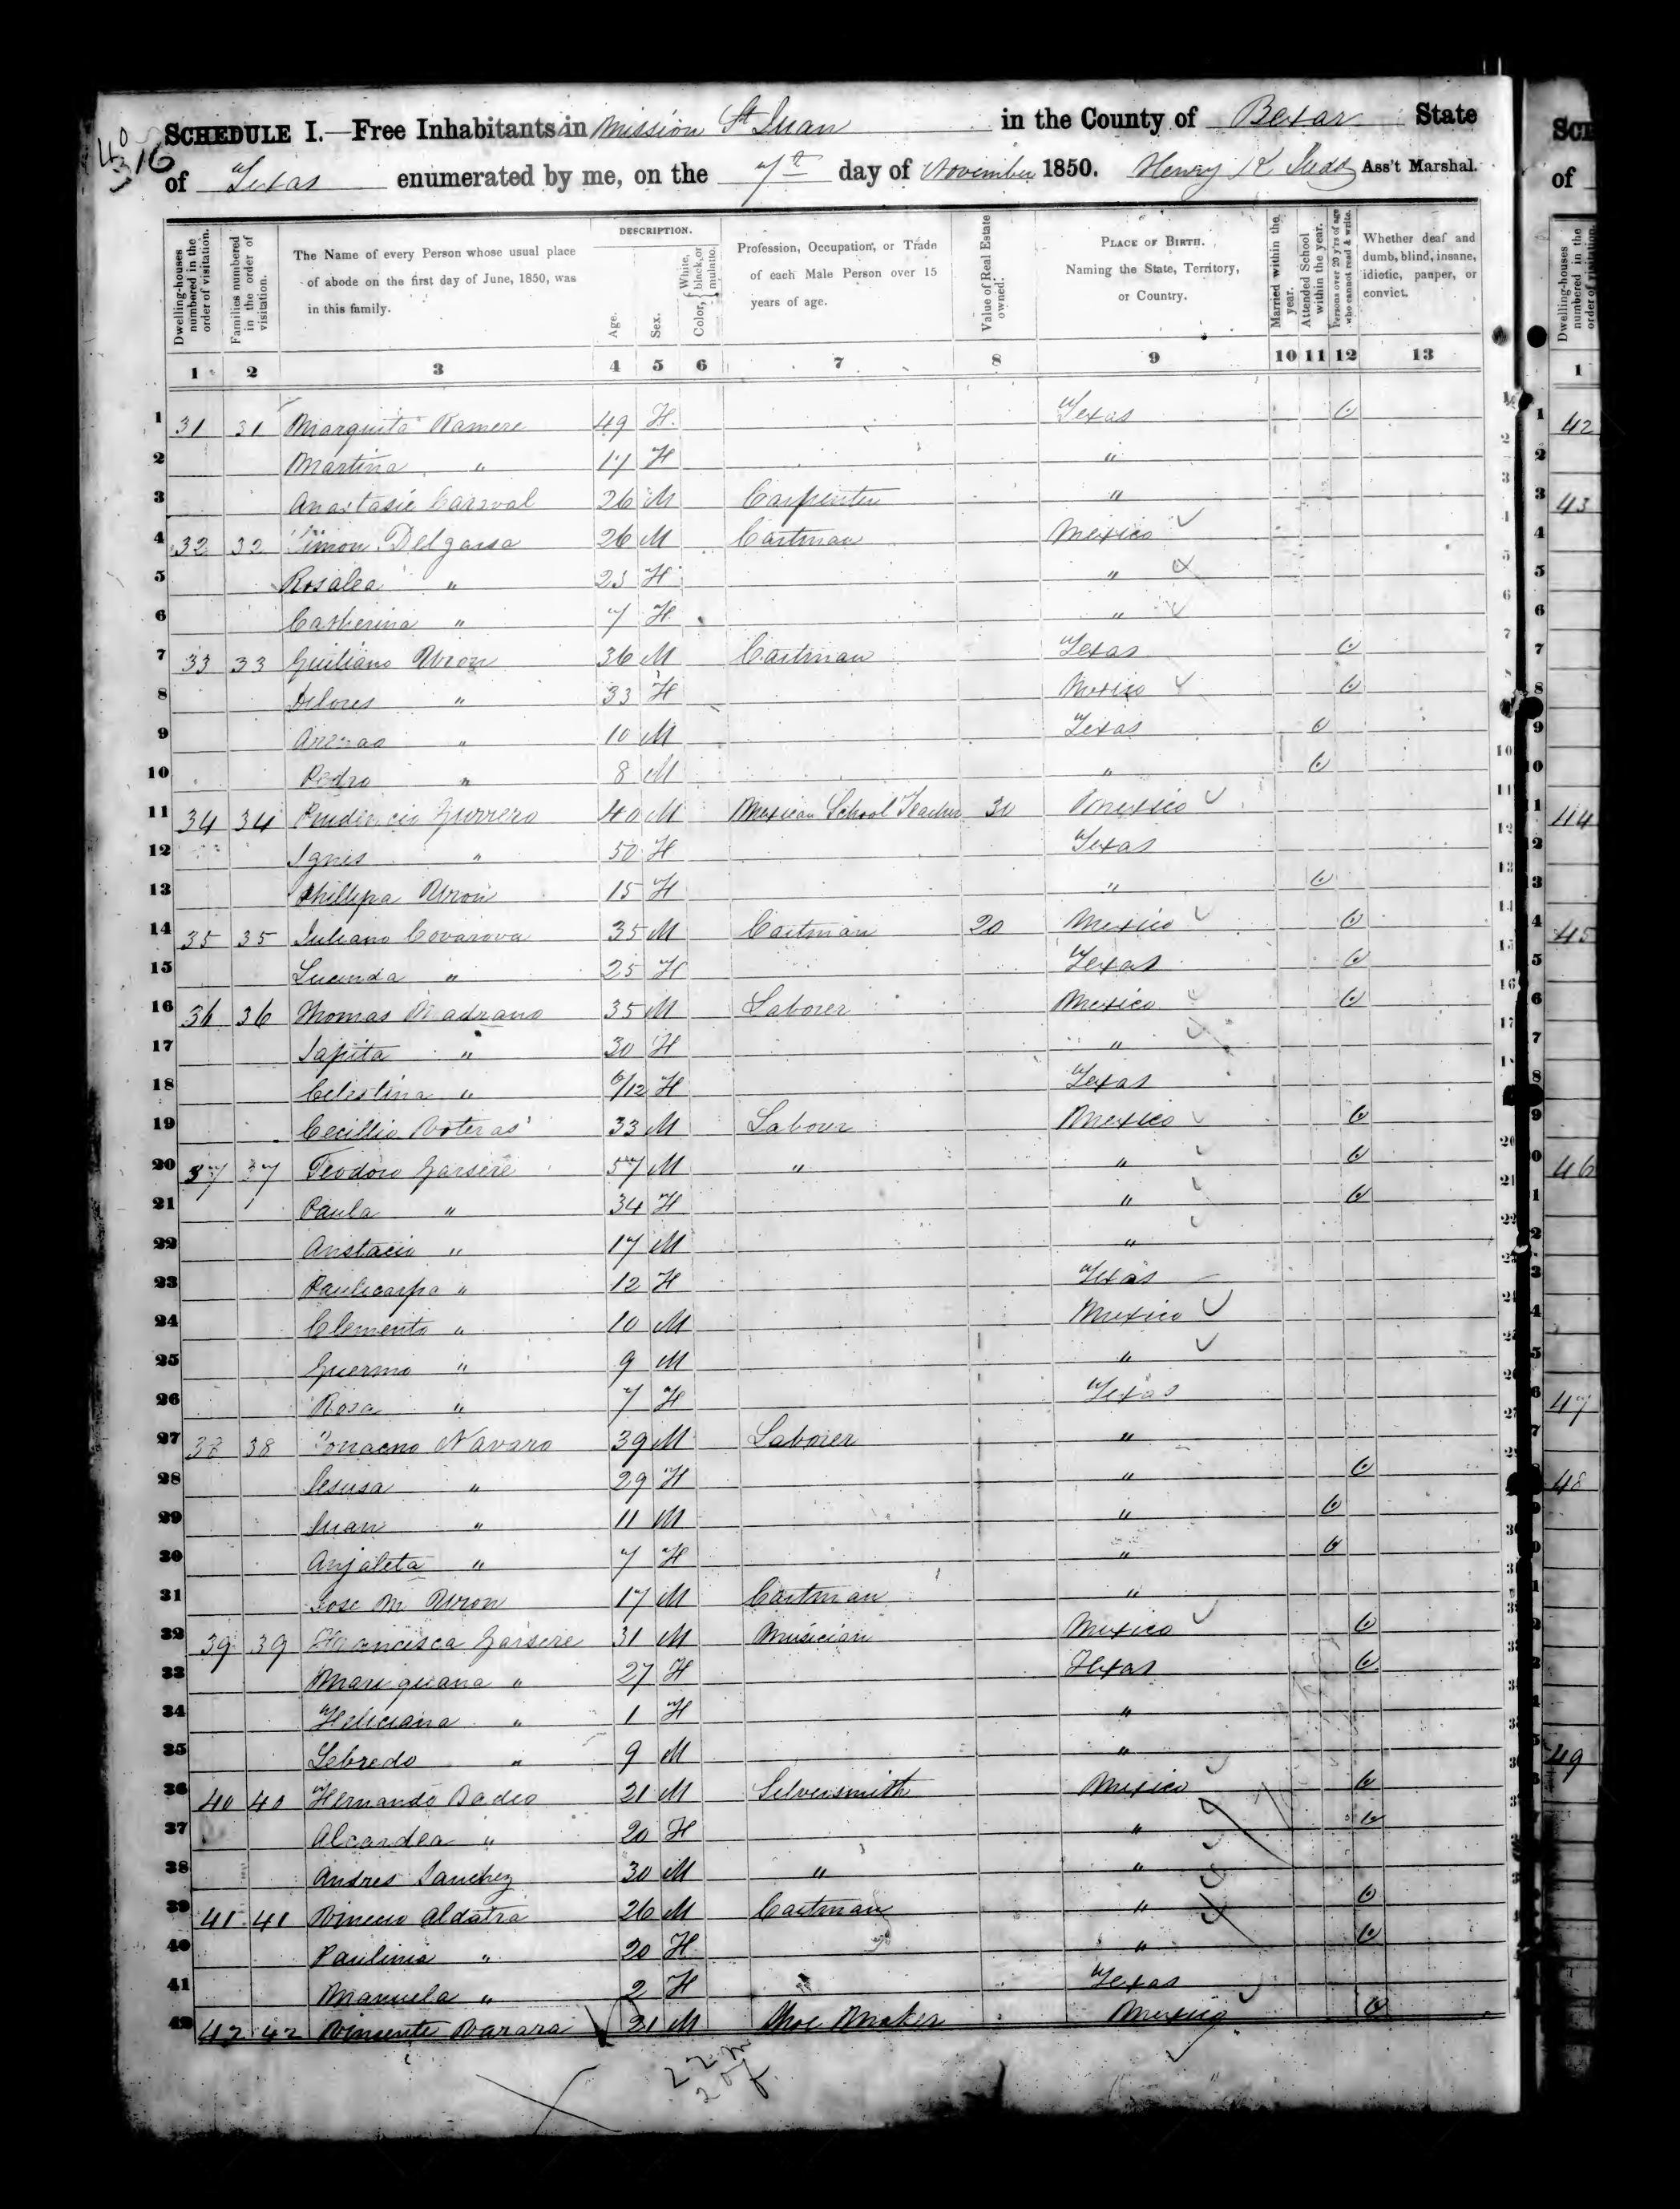 40
316
SCHEDULE I.—Free Inhabitants in Mission St Juan in the County of Bexar State
of Texas enumerated by me, on the 7th day of November 1850. Henry K Judd Ass't Marshal.
Dwelling-houses numbered in the order of visitation.
Families numbered in the order of visitation.
The Name of every Person whose usual place of abode on the first day of June, 1850, was in this family.
DESCRIPTION.
Age.
Sex.
Color, White, black, or mulatto.
Profession, Occupation, or Trade of each Male Person over 15 years of age.
Value of Real Estate owned.
PLACE OF BIRTH. Naming the State, Territory, or Country.
Married within the year.
Attended School within the year.
Persons over 20 y'rs of age who cannot read & write.
Whether deaf and dumb, blind, insane, idiotic, pauper, or convict.
1 2 3 4 5 6 7 8 9 10 11 12 13
1 31 31 Marquita Ramere 49 F Texas
2 Martina " 17 F "
3 Anastasie Caraval 26 M Carpenter "
4 32 32 Simon Delgassa 26 M Cartman Mexico
5 Rosalea " 23 F "
6 Catherina " 7 F "
7 33 33 Guiliano Uron 36 M Cartman Texas
8 Delores " 33 F Mexico
9 " 10 M Texas
10 Pedro " 8 M "
11 34 34 Prudencio Gurrero 40 M Mexican School Teacher 30 Mexico
12 Ignes " 50 F Texas
13 Phillipa Uron 15 F "
14 35 35 Juliano Covarova 35 M Cartman 20 Mexico
15 Lucinda " 25 F Texas
16 36 36 Thomas Madrano 35 M Laborer Mexico
17 Sapita " 30 F "
18 Celestina " 6/12 F Texas
19 Cecillio 33 M Labour Mexico
20 37 37 Teodoro Garsere 57 M " "
21 Paula " 34 F "
22 Anstacio " 17 M "
23 Paulicarpa " 12 F Texas
24 Clemento " 10 M Mexico
25 Guermo " 9 M "
26 Rosa " 7 F Texas
27 38 38 Navaro 39 M Laborer "
28 Jesusa " 29 F "
29 Juan " 11 M "
30 Anjaleta " 7 F "
31 Jose M Uron 17 M Cartman "
32 39 39 Francisca Garsere 31 M Musician Mexico
33 Mariquana " 27 F Texas
34 Feliciana " 1 F "
35 Lebredo " 9 M "
36 40 40 Hernando Badeo 21 M Silversmith Mexico
37 Alcandea " 20 F "
38 Andres Sanchez 30 M " "
39 41 41 Aldatra 26 M Cartman "
40 Paulinia " 20 F "
41 Manuela " 2 F Texas
42 42 42 Vinsente Varara 21 M Shoe Maker Mexico
22 m
20 f